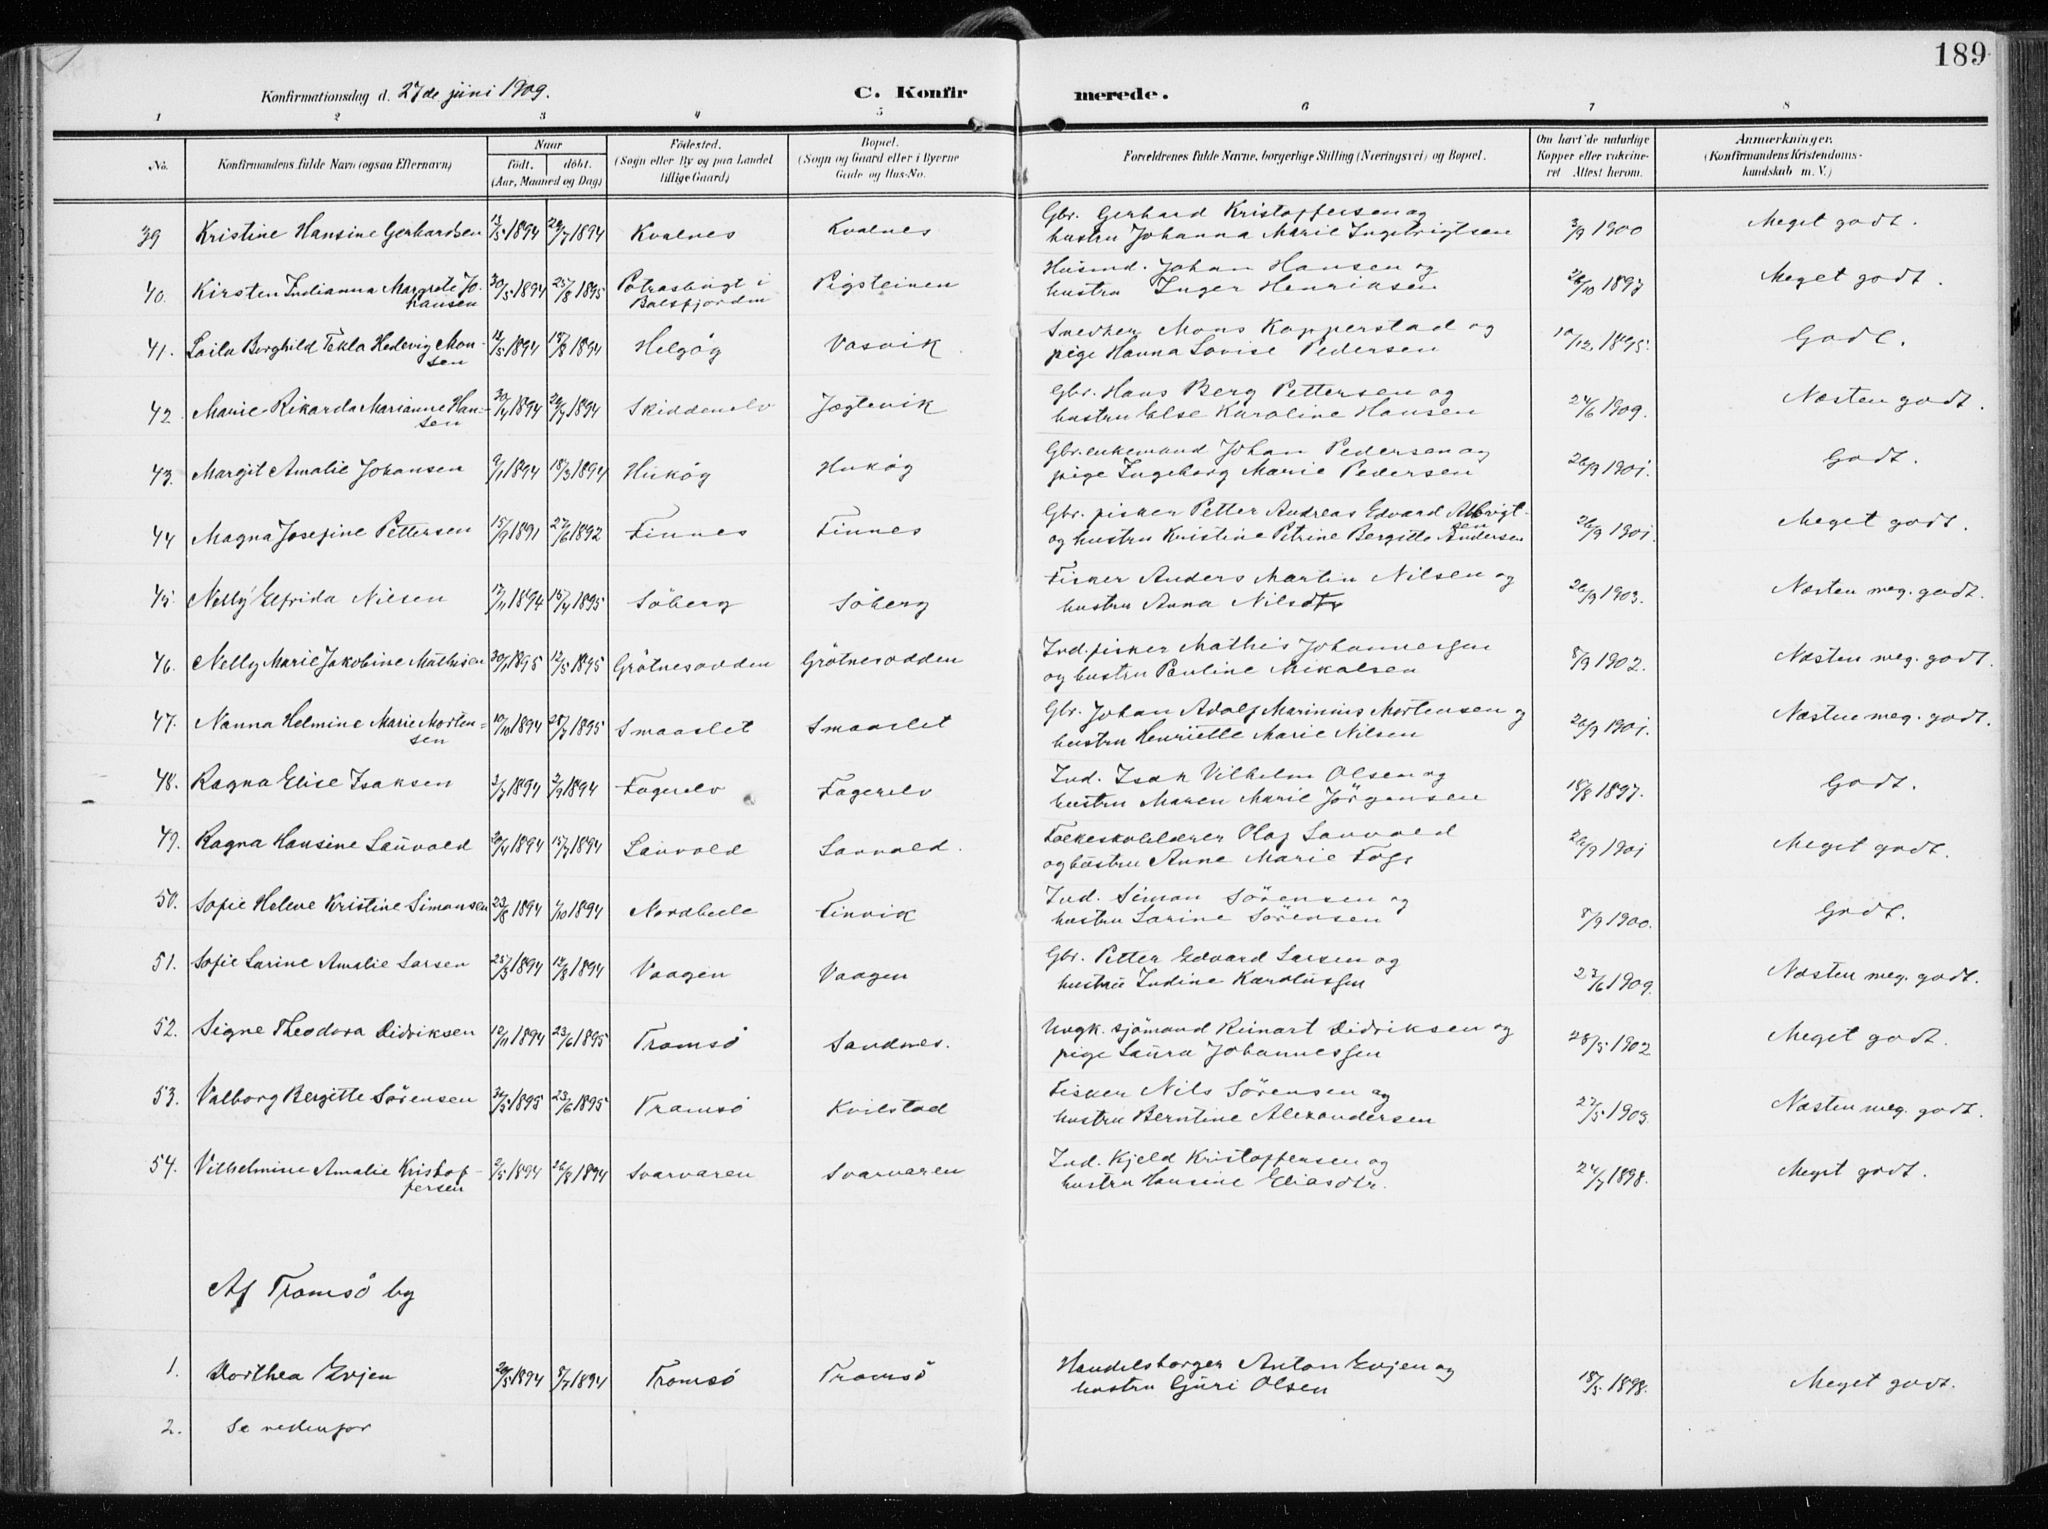 189
Konfirmationsdag d. 27de juni 1909. C. Konfirmerede.
1 2 3 4 5 6 7 8
No. Konfirmandens fulde Navn (ogsaa Efternavn) Naar født, døbt. (Aar, Maaned og Dag) Fødested. (Sogn eller By og paa Landet tillige Gaard) Bopæl. (Sogn og Gaard eller i Byerne Gade og Hus-No. Forældrenes fulde Navne, borgerlige Stilling (Næringsvei) og Bopæl. Om havt de naturlige Kopper eller vakcineret. Attest herom. Anmærkninger. (Konfirmandens Kristendomskundskab m. V.)
39 Kristine Hansine Gerhardsen 13/5 1894 29/7 1894 Kvalnes Kvalnes Gbr. Gerhard Kristoffersen og
hustru Johanna Marie Ingebrigtsen 3/9 1900 Meget godt.
40. Kirsten Indianna Margrete Jo-
hansen 30/5 1894 25/8 1895 Potrasbugt i
Balsfjorden Pigsteinen Husmd. Johan Hansen og
hustru Inger Henriksen 26/10 1897 Meget godt.
41. Laila Borghild Tekla Hedevig Mon-
sen 12/5 1894 19/8 1894 Helgøy Vasvik Snedker Mons Kopperstad og
pige Hanna Lovise Pedersen 10/12 1895. Godt.
42. Marie Rikarda Marianne Han-
sen 30/4 1894 29/7 1894 Skiddenelv Jægtevik Gbr. Hans Berg Pettersen og
hustru Else Karoline Hansen 24/6 1909. Næsten godt.
43. Margit Amalie Johansen 9/1 1894 18/3 1894 Hukøy Hukøy Gbr. enkemand Johan Pedersen og
pige Ingeborg Marie Pedersen 26/9 1901. Godt.
44 Magna Josefine Pettersen 15/9 1891 27/6 1892 Finnes Finnes Gbr. fisker Petter Andreas Edvard Albrigt-
sen
og hustru Kristine Petrine Bergitte Andersen 26/9 1901. Meget godt.
45 Nelly Elfrida Nilsen 17/11 1894 15/4 1895 Søberg Søberg Fisker Anders Martin Nilsen og
hustru Anna Nilsdtr 26/9 1903. Næsten meg. godt.
46. Nelly Marie Jakobine Mathisen 30/1 1895 12/5 1895 Grøtnesodden Grøtnesodden Ind. fisker Mathis Johannessen
og hustru Pauline Mikalsen 8/9 1902. Næsten meg. godt.
47. Nanna Helmine Marie Morten-
sen 10/10 1894 28/7 1895 Smaaslet Smaaslet Gbr. Johan Adolf Marinius Mortensen og
hustru Henriette Marie Nilsen 26/9 1901. Næsten meg. godt.
48. Ragna Elise Isaksen 2/7 1894 2/9 1894 Fagerelv Fagerelv Ind. Isak Vilhelm Olsen og
hustru Maren Marie Jørgensen 18/8 1897. Godt.
49. Ragna Hansine Lauvold 20/4 1894 15/7 1894 Lauvold Lauvold. Folkeskolelærer Olaf Lauvold
og hustru Anne Marie Fogs 26/9 1901 Meget godt.
50. Sofie Helene Kristine Simonsen 23/8 1894 1/10 1894 Nordbeile Finvik Ind. Simon Sørensen og
hustru Sarine Sørensen 8/9 1900. Godt.
51. Sofie Sarine Amalie Larsen 25/3 1894 12/8 1894 Vaagen Vaagen Gbr. Petter Edvard Larsen og
hustru Indine Karolussen 23/6 1909. Næsten meg. godt.
52. Signe Theodora Didriksen 10/11 1894 23/6 1895 Tromsø Sandnes. Ungk. sjømand Reinart Didriksen og
pige Laura Johannessen 28/5 1902 Meget godt.
53. Valborg Bergitte Sørensen 26/5 1895 23/6 1895 Tromsø Kvilstad Fisker Nils Sørensen og
hustru Berntine Alexandersen 27/5 1903. Næsten meg. godt.
54. Vilhelmine Amalie Kristof-
fersen 2/5 1894 26/8 1894 Svarvaren Svarvaren Ind. Kjeld Kristoffersen og
hustru Hansine Eliasdtr. 24/7 1898. Meget godt.
Af Tromsø by
1. Dorthea Evjen 20/5 1894 8/7 1894 Tromsø Tromsø Handelsborger Anton Evjen og
hustru Guri Olsen 18/5 1898. Meget godt.
2. Se nedenfor